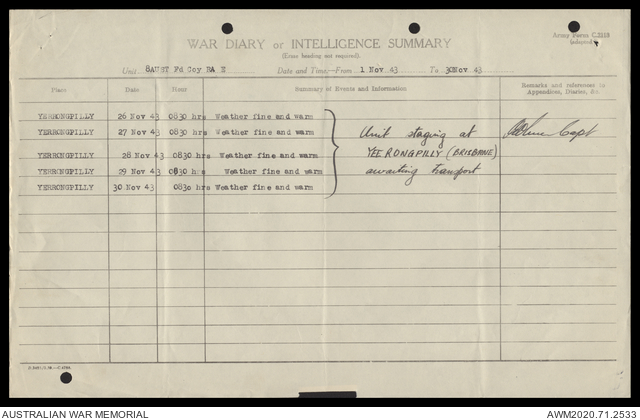 Army Form C.2118
(adapted)
WAR DIARY or INTELLIGENCE SUMMARY
(Erase heading not required).
Unit 8AUST Fd Coy RA E Date and Time—From 1 Nov 43 To 30Nov 43
Place Date Hour Summary of Events and Information Remarks and references to Appendices, Diaries, &c.
YERRONGPILLY 26 Nov 43 0830 hrs Weather fine and warm
YERRONGPILLY 27 Nov 43 0830 hrs Weather fine and warm Unit staging at Capt
YERRONGPILLY 28 Nov 43 0830 hrs Weather fine and warm YEERONGPILLY (BRISBANE)
YERRONGPILLY 29 Nov 43 0830 hrs Weather fine and warm awaiting transport
YERRONGPILLY 30 Nov 43 0830 hrs Weather fine and warm
AUSTRALIAN WAR MEMORIAL AWM2020.71.2533